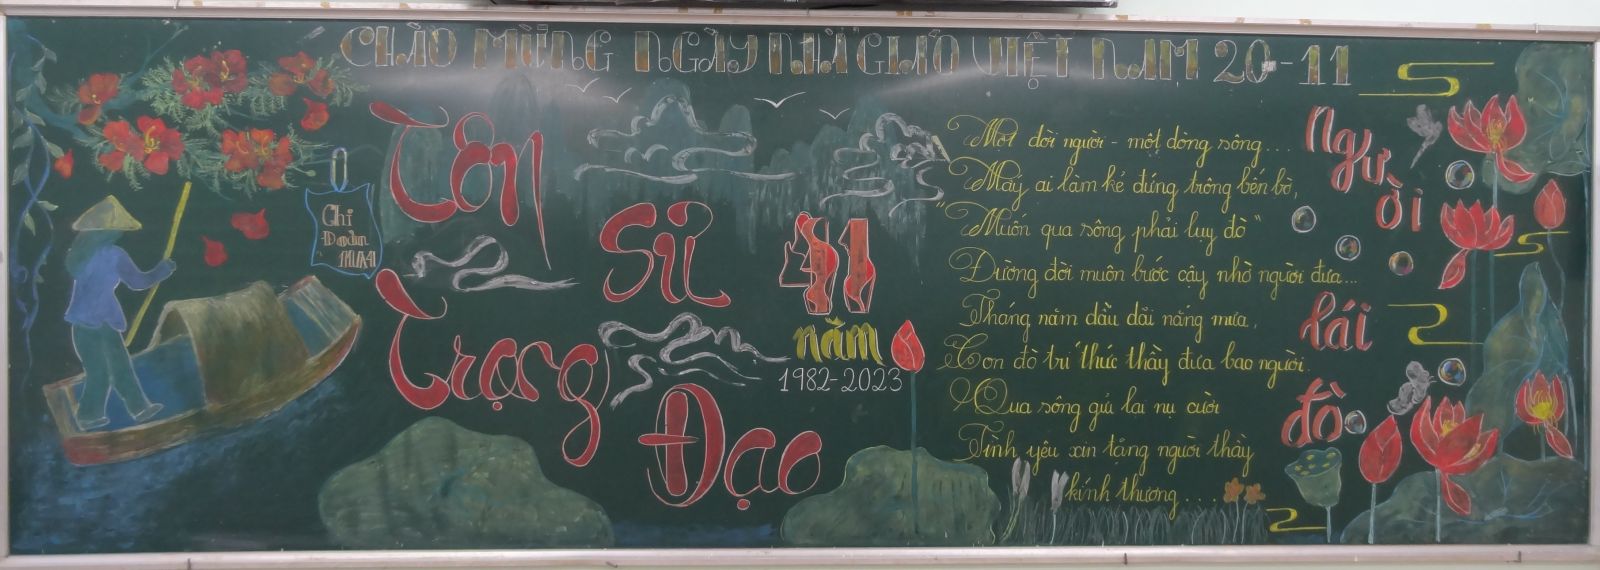 CHÀO MỪNG NGÀY NHÀ GIÁO VIỆT NAM 20-11
Chi
Đoàn
11A1
Tôn
Sư
Trọng
Đạo
41
năm
1982-2023
Một đời người - một dòng sông...
Mấy ai làm kẻ đứng trông bến bờ,
"Muốn qua sông phải lụy đò"
Đường đời muôn bước cậy nhờ người đưa...
Tháng năm dầu dãi nắng mưa,
Con đò trí thức thầy đưa bao người.
Qua sông gửi lại nụ cười
Tình yêu xin tặng người thầy
kính thương...
Người
lái
đò